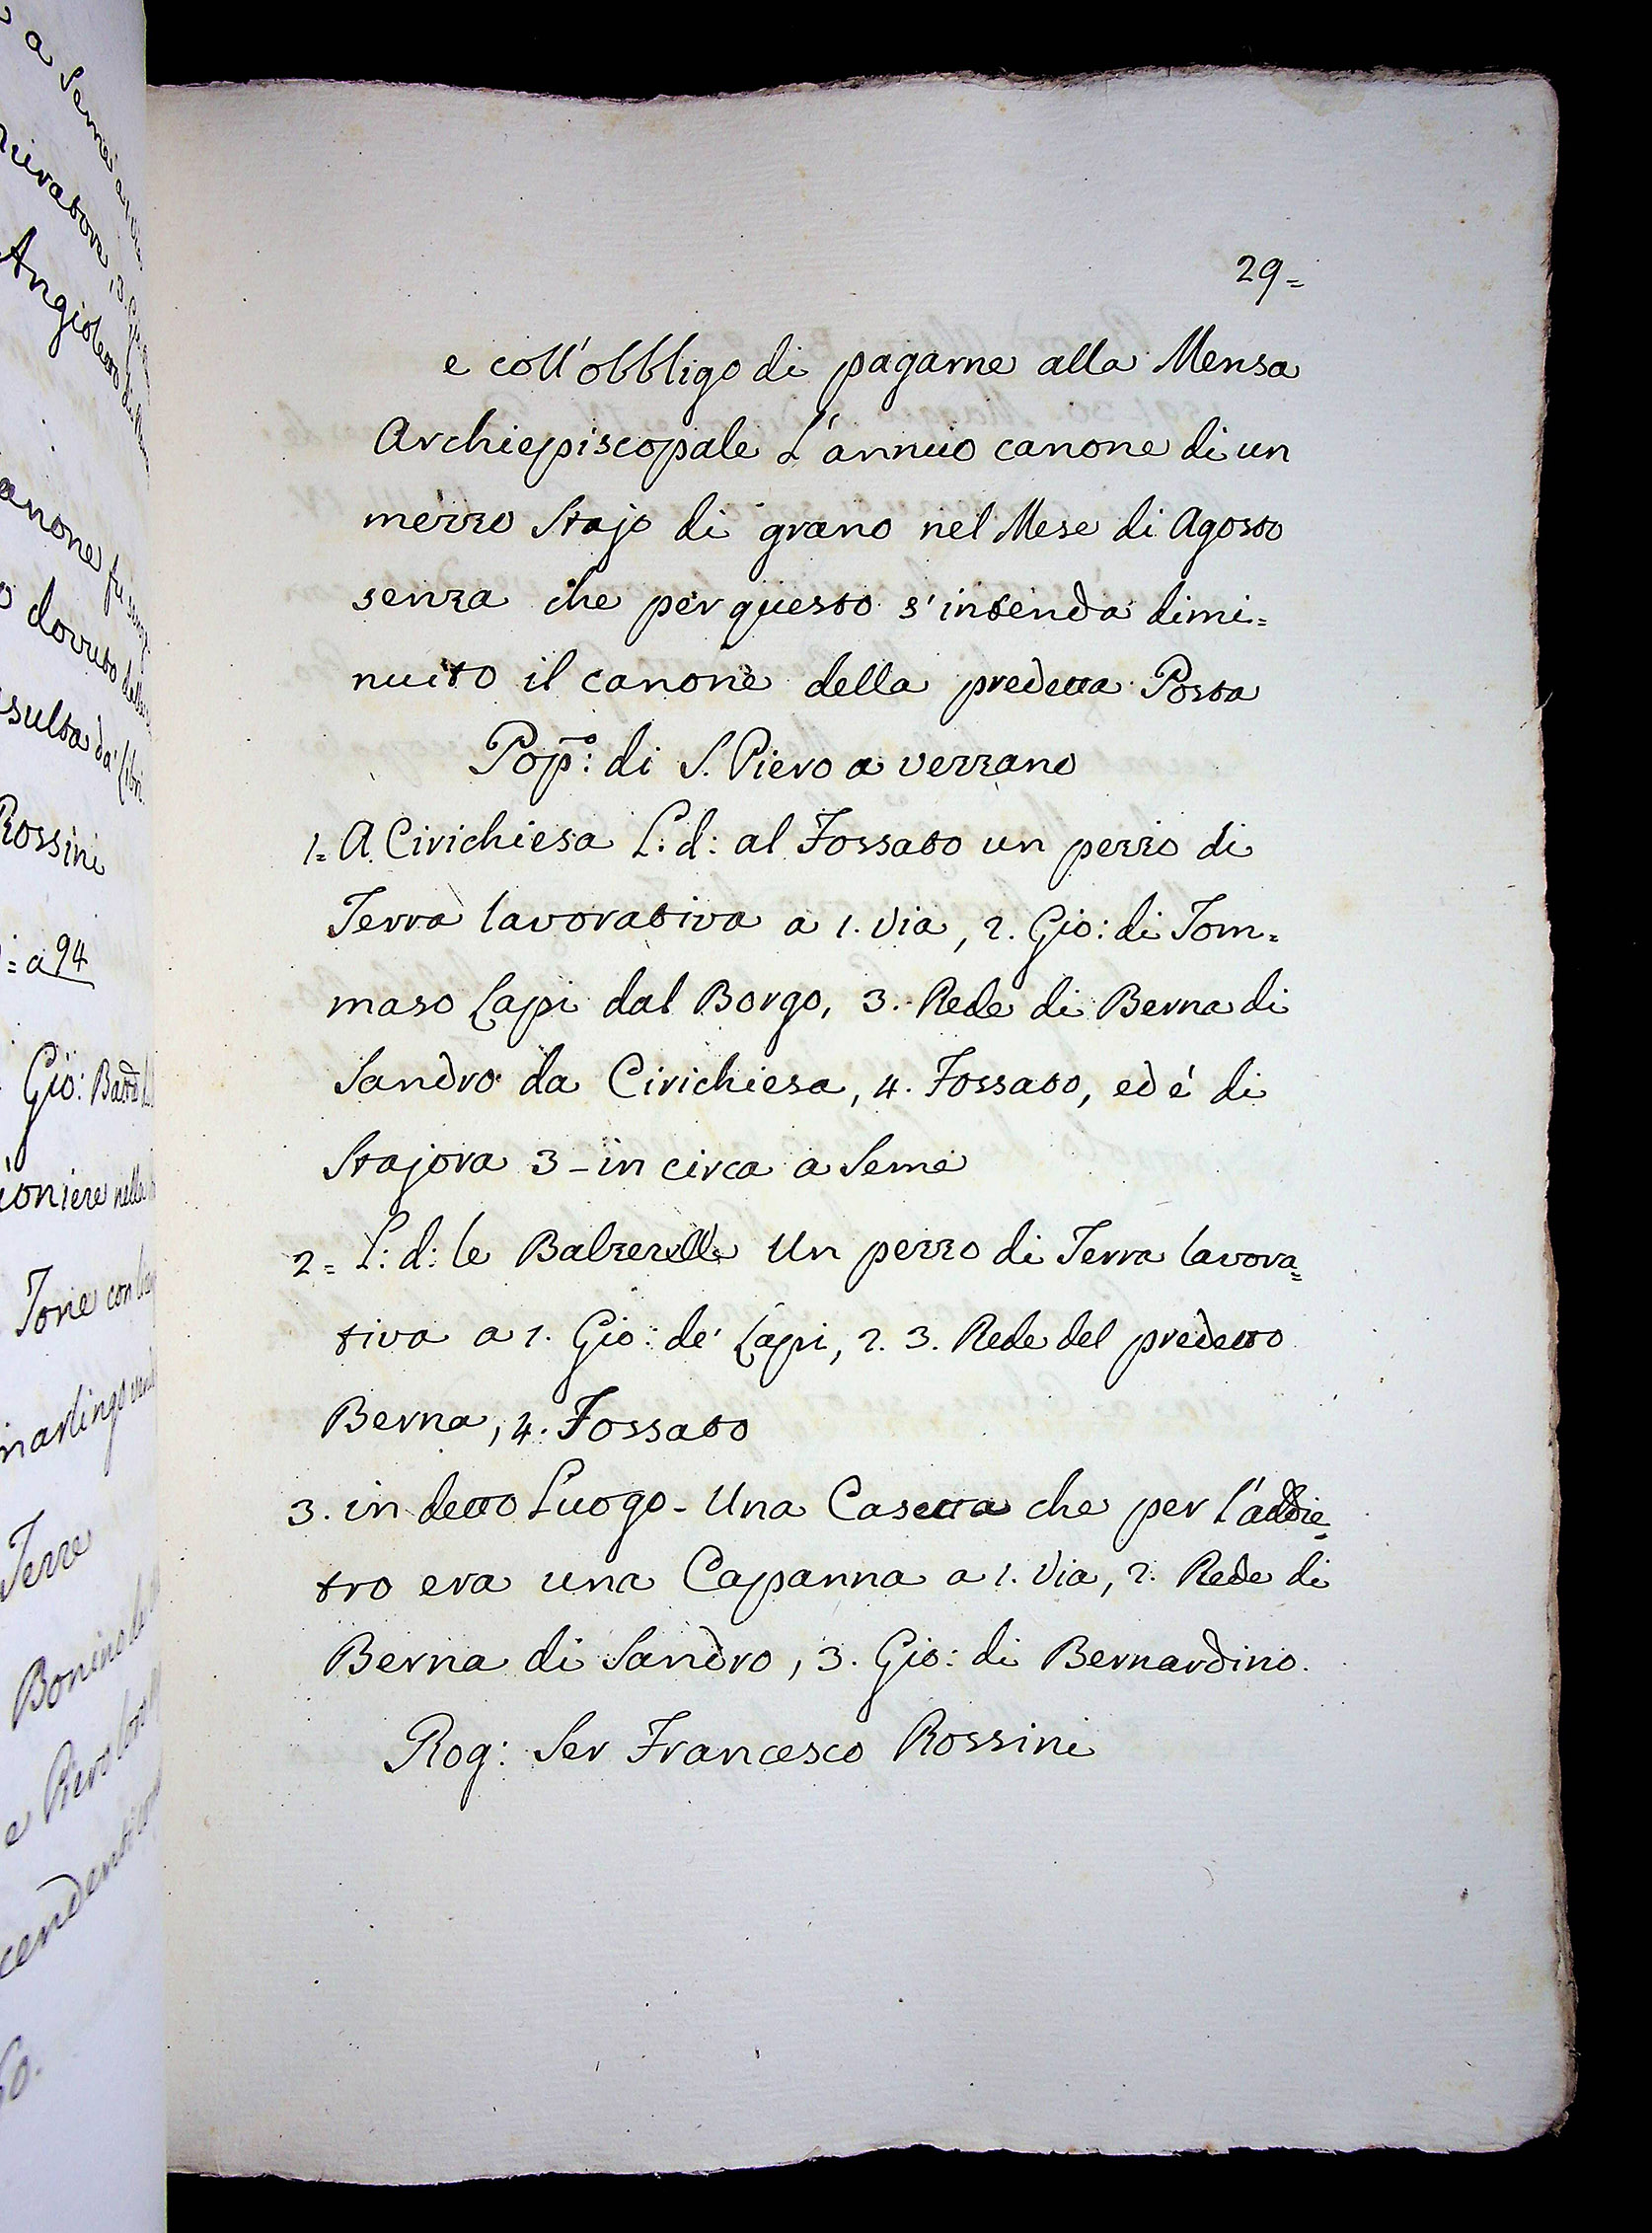 29=
e coll'obbligo di pagarne alla Mensa
Archiepiscopale L'annuo canone di un
mezzo Stajo di grano nel Mese di Agosto
senza che per questo s'intenda dimi=
nuito il canone della predetta Posta
Pop:º di S. Piero a vezzano
1= A Cirichiesa L: d: al Fossato un pezzo di
Terra lavorativa a 1. Via, 2. Gio: di Tom=
maso Lapi dal Borgo, 3. Rede di Berna di
Sandro da Cirichiesa, 4. Fossato, ed é di
Stajora 3 - in circa a Seme
2= L: d: le Balzerelle Un pezzo di Terra lavora=
tiva a 1. Gio: de' Lapi, 2. 3. Rede del predetto
Berna, 4. Fossato
3. in detto Luogo - Una Casetta che per l'addie=
tro era una Capanna a 1. Via, 2. Rede di
Berna di Sandro, 3. Gio: di Bernardino.
Rog: Ser Francesco Rossini